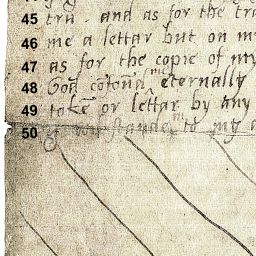 45 tru . and as for the tra
46 me a lettar but on my
47 as for the copie of my
48 God eternally
49 take or lettar by any
50 to my a